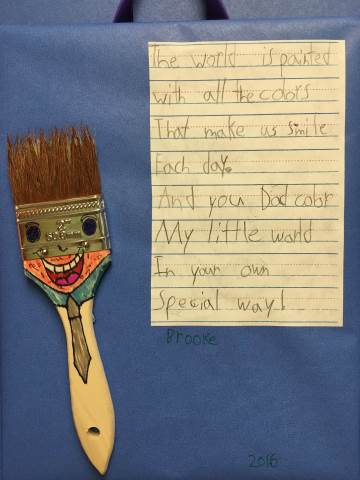 The world is painted
with all the colors
That make us smile
Each day.
And you Dad color
My little world
In your own
Special way!
Brooke
2016